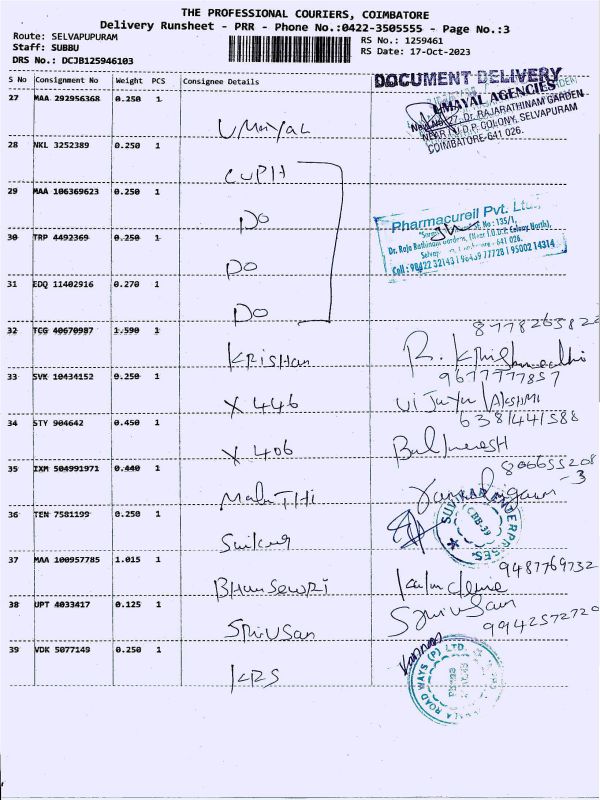 THE PROFESSIONAL COURIERS, COIMBATORE
Delivery Runsheet - PRR - Phone No.:0422-3505555 - Page No.:3
Route: SELVAPUPURAM
Staff: SUBBU
DRS No.: DCJB125946103
RS No.: 1259461
RS Date: 17-Oct-2023
S No Consignment No Weight PCS Consignee Details
DOCUMENT DELIVERY
UMAYAL AGENCIES
Dr. RAJARATHINAM GARDEN
NEAR I.U.D.P. COLONY, SELVAPURAM
COIMBATORE-641 026.
27 MAA 292956368 0.250 1
UMAYAL
28 NKL 3252389 0.250 1
CUPH
29 MAA 106369623 0.250 1
DO
Pharmacureil Pvt. Ltd.
No : 135/1,
Dr. Raja Rathinam Gardens, (Near I.U.D.P. Colony North),
641 026.
Cell : 98422 32143 | 98439 77728 | 95002 14314
30 TRP 4492369 0.250 1
DO
31 EDQ 11402916 0.270 1
DO
32 TCG 40670987 1.590 1
KRISHAN
R.
33 SVK 10434152 0.250 1
9677777857
X 446
34 STY 904642 0.450 1
6381441588
X 406
35 IXM 504991971 0.440 1
MaluTHI
36 TEN 7581199 0.250 1
SUVIKAR ENTERPRISES.
CBB-39
37 MAA 100957785 1.015 1
9487769732
38 UPT 4033417 0.125 1
SriVSan
9942572720
39 VDK 5077149 0.250 1
KRS
ROAD WAYS (P) LTD.